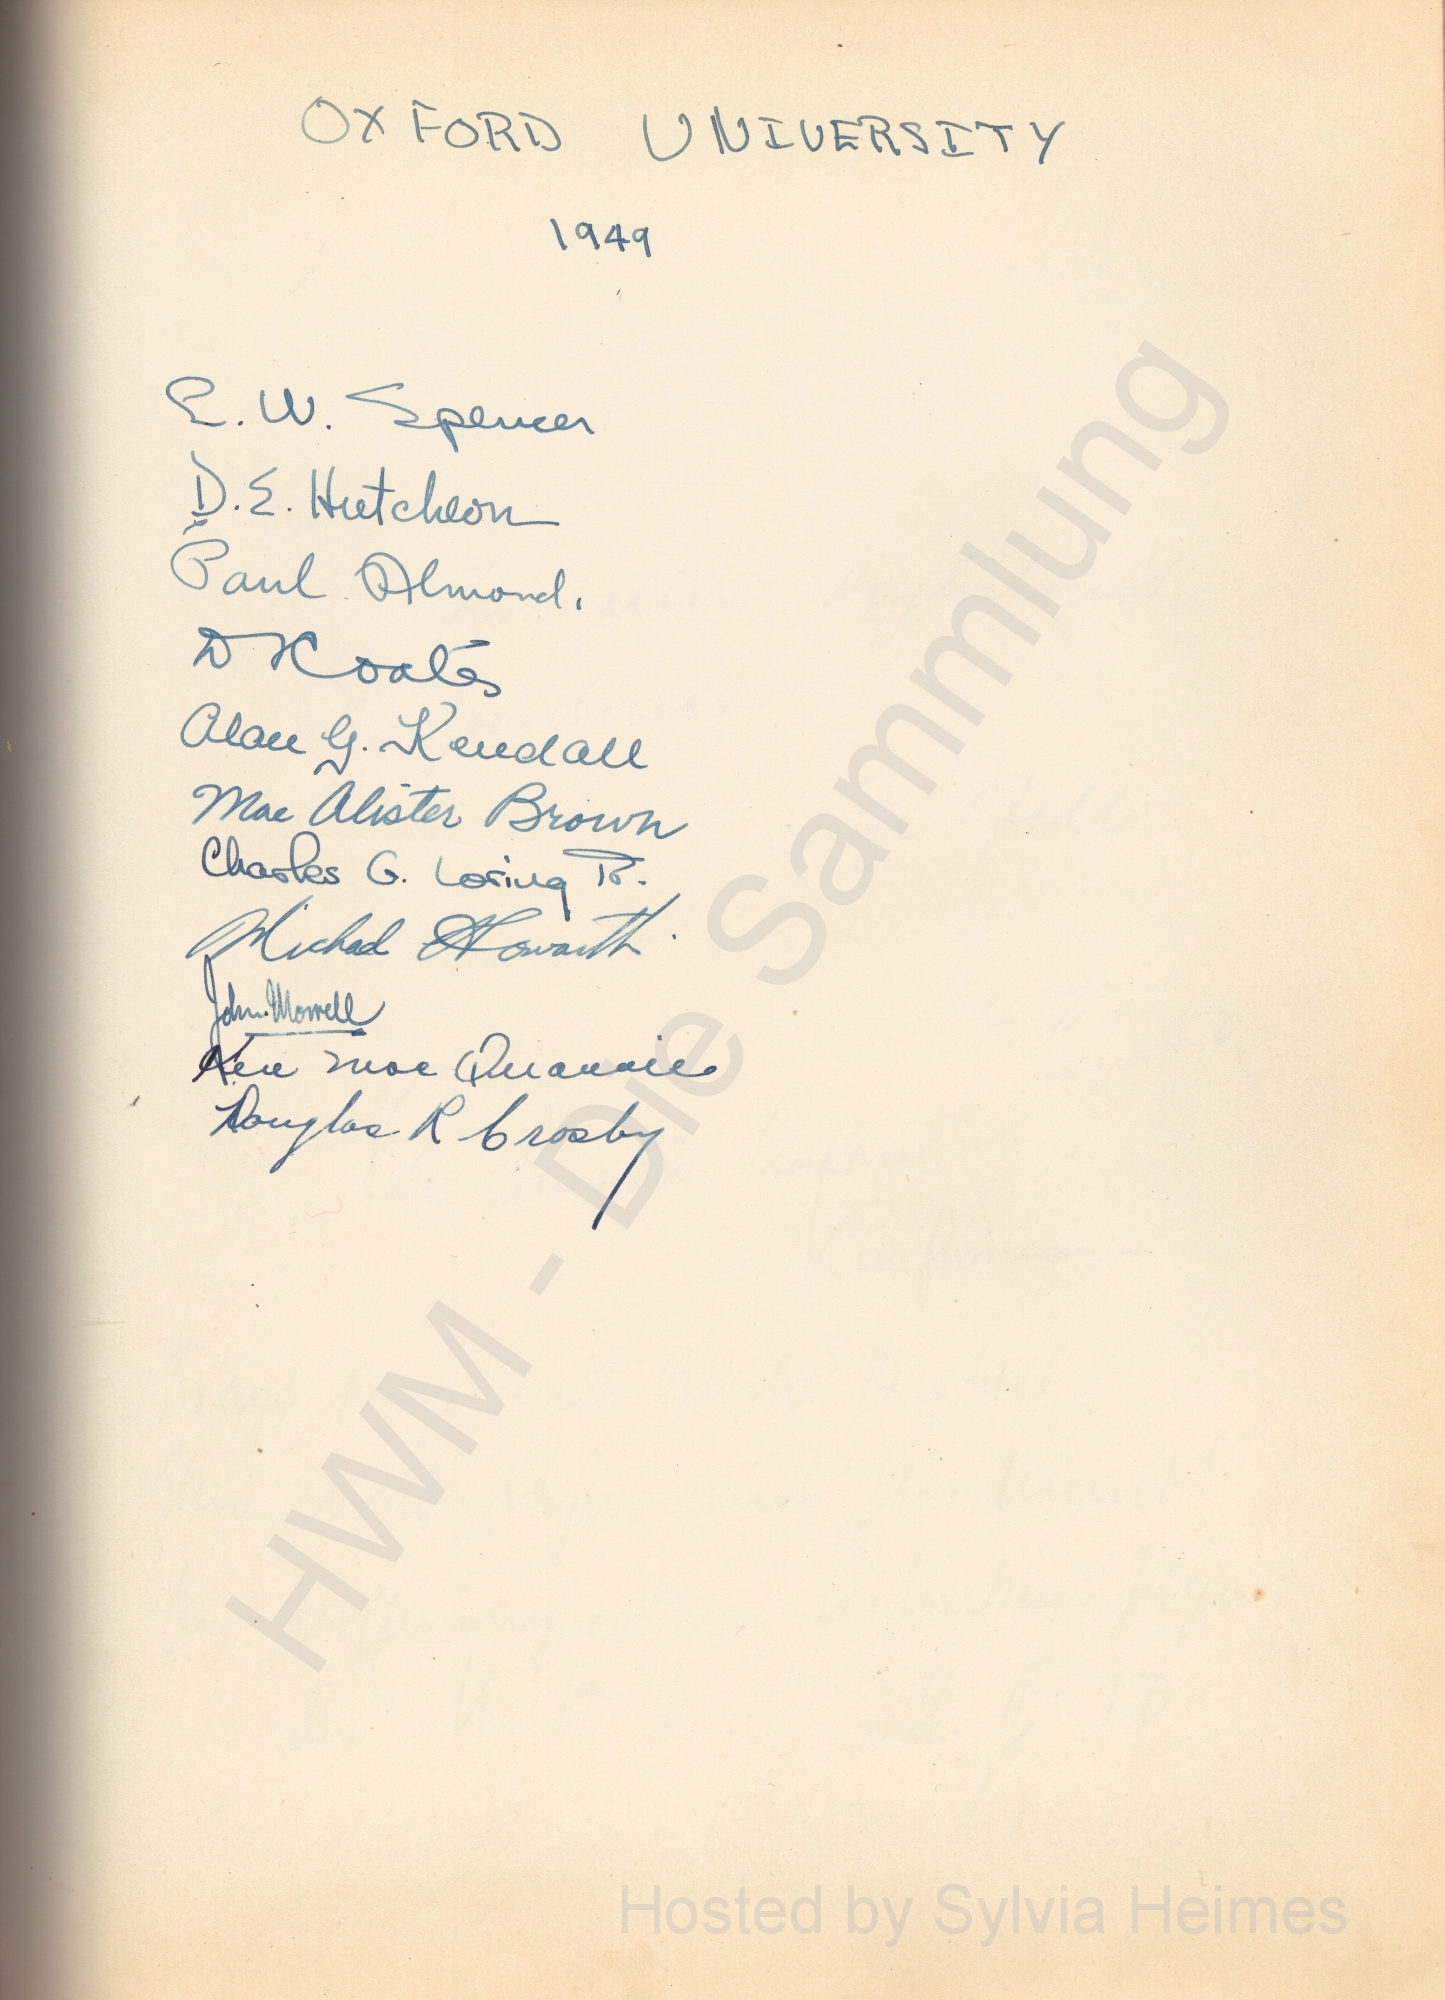 OXFORD UNIVERSITY
1949
E. W. Spencer
D. E. Hutcheon
Paul Almond.
D Coates
Alan G. Kendall
MacAlister Brown
Charles G. Loring Jr.
Michael Howarth.
John
Ken Mac
Douglas R Crosby
HWM - Die Sammlung
Hosted by Sylvia Heimes